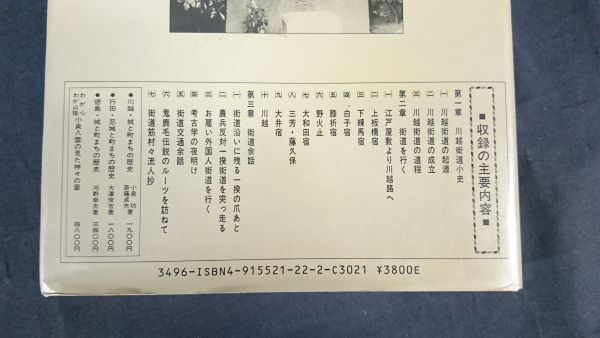 ■収録の主要内容■
第一章 川越街道小史
㈠ 川越街道の起源
㈡ 川越街道の成立
㈢ 川越街道の道程
第二章 街道を行く
㈠ 江戸屋敷より川越路へ
㈡ 上板橋宿
㈢ 下練馬宿
㈣ 白子宿
㈤ 膝折宿
㈥ 野火止
㈦ 大和田宿
㈧ 三芳・藤久保
㈨ 大井宿
㈩ 川越
第三章 街道余話
㈠ 街道沿いに残る一揆の爪あと
㈡ 農兵反対一揆街道を突っ走る
㈢ お雇い外国人街道を行く
㈣ 考古学の夜明け
㈤ 街道交通余話
㈥ 鬼鹿毛伝説のルーツを訪ねて
㈦ 街道筋村々流人抄
●川越・城と町まちの歴史 小泉功 斎藤貞夫著 一九〇〇円
●行田・忍城と町まちの歴史 大澤俊吉著 一八〇〇円
●徳島・城と町まちの歴史 河野幸夫著 三四〇〇円
●わが心わが山陰 小泉八雲の見た神々の里 四八〇〇円
3496-ISBN4-915521-22-2-C3021 ¥3800E